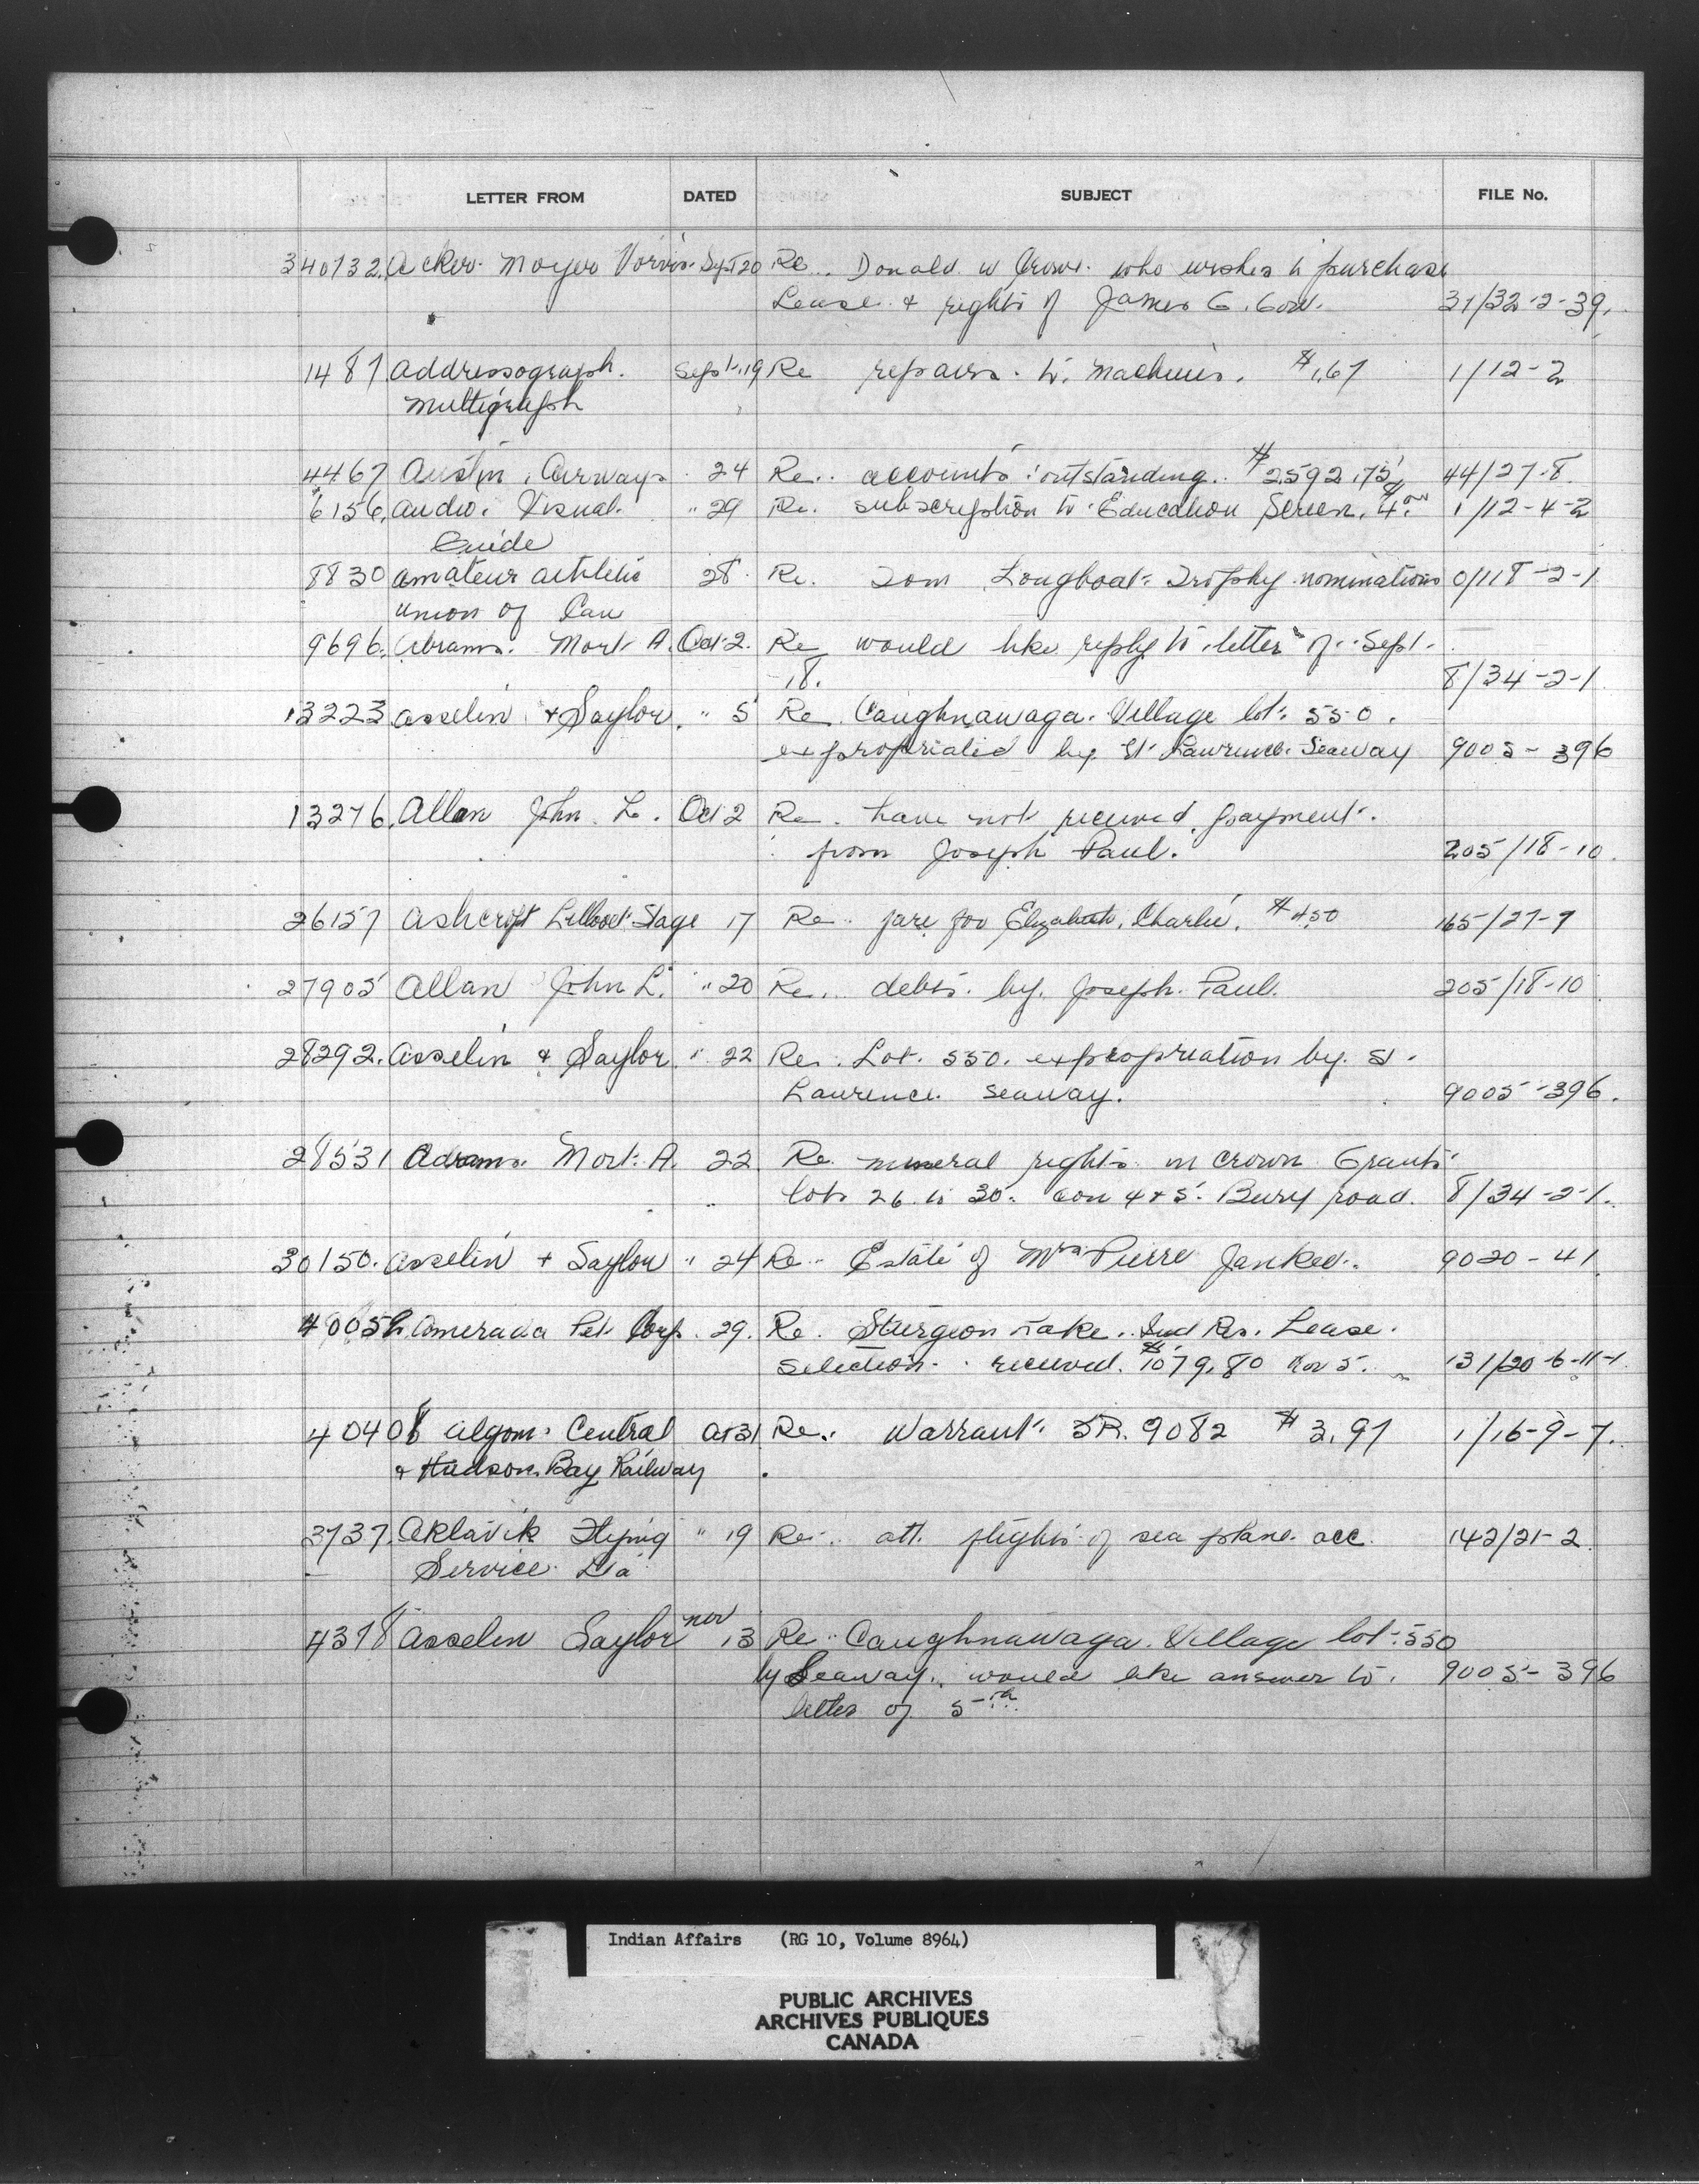 LETTER FROM DATED SUBJECT FILE No.
340732. Acker Moyer Sept 20 Re Donald W Crowe who wishes to purchase
Lease & rights of James G. 31/32-2-39.
1487 Addressograph. Sept. 19 Re repairs to Machines. $1.67 1/12-2
Multigraph
4467 Austin Airways 24 Re accounts outstanding $2592.75 44/27-8
6156. Audio Visual 29 Re. subscription to Education Screen. $4.00 1/12-4-2
Guide
8830 Amateur Athletic 28 Re. Tom Longboat Trophy nominations 0/118-2-1
Union of Can
9696. Abrams. Mort A. Oct 2. Re would like reply to letter of Sept.
18. 8/34-2-1
13223 Asselin & Saylor. " 5 Re Caughnawaga Village lot 550.
expropriated by St Lawrence Seaway 9005-396
13276. Allan John L. Oct 2 Re. have not received payment
from Joseph Paul. 205/18-10.
26157 Ashcroft Lillooet Stage 17 Re fare for Elizabeth Charlie. $4.50 165/27-7
27905 Allan John L. " 20 Re. debts by Joseph Paul. 205/18-10
28292. Asselin & Saylor. " 22 Re. Lot. 550. expropriation by St
Lawrence Seaway. 9005-396.
28531 Adrams Mort. A. 22 Re mineral rights in Crown Grants
lots 26 to 30. Con 4 & 5. Bury road. 8/34-2-1.
30150. Asselin & Saylor " 24 Re Estate of Mrs Pierre Jankee. 9020-41
40052 Amerada Pet Corp. 29. Re. Sturgeon Lake Ind Res. Lease
selection received. $1079.80 Nov 5. 131/20-6-11-1
40408 Algoma Central Oct 31 Re. Warrant SR. 9082 $3.97 1/16-9-7.
& Hudson Bay Railway
3737. Aklavik Flying " 19 Re att. flights of sea plane acc. 142/21-2
Service Ltd
4378 Asselin Saylor Nov 13 Re Caughnawaga Village lot 550
by Seaway, would like answer to 9005-396
letter of 5th
Indian Affairs (RG 10, Volume 8964)
PUBLIC ARCHIVES
ARCHIVES PUBLIQUES
CANADA